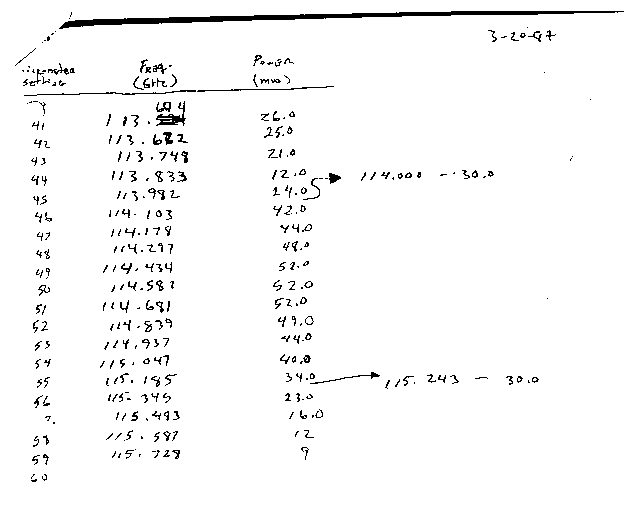 3-20-87
Freq. Power
setting (GHz) (mw)
41 113. 26.0
42 113.682 25.0
43 113.748 21.0
44 113.833 12.0 → 114.000 - 30.0
45 113.982 24.0
46 114.103 42.0
47 114.178 44.0
48 114.297 48.0
49 114.434 52.0
50 114.582 52.0
51 114.681 52.0
52 114.839 49.0
53 114.937 44.0
54 115.047 40.0
55 115.185 34.0 → 115.243 - 30.0
56 115.345 23.0
115.493 16.0
58 115.587 12
59 115.728 9
60